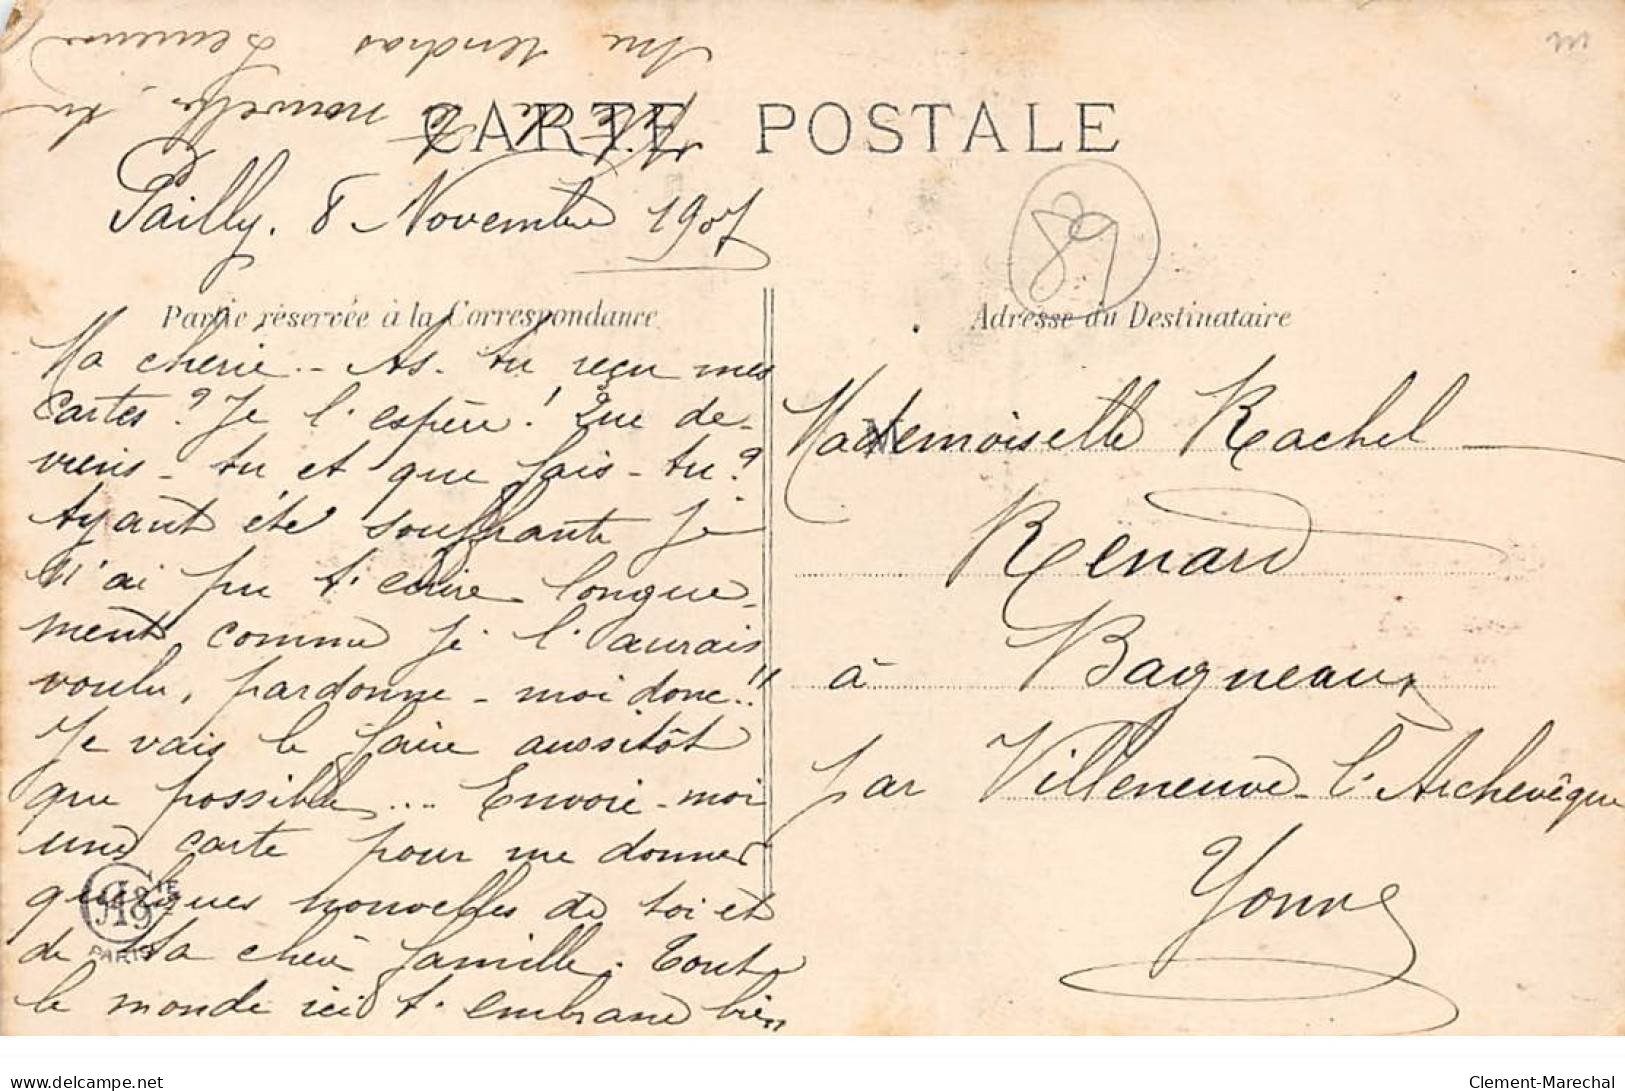 CARTE POSTALE
Pailly. 8 Novembre 1907
Partie réservée à la Correspondance
Ma cherie.. As-tu reçu mes
cartes? Je l'espère! Que de-
viens-tu et que fais-tu?
Ayant été souffrante je
n'ai pu t'ecrire longue-
ment comme je l'aurais
voulu, pardonne-moi donc!!
Je vais le faire aussitôt
que possible... Envoie-moi
une carte pour me donner
quelques nouvelles de toi et
de ta chère famille. Tout
le monde ici t'embrasse bien
nouvelles, tu
me rendras heureuse
89
Adresse du Destinataire
Mademoiselle Rachel
Renard
à Bagneaux
par Villeneuve-l'Archevêque
Yonne
PARIS
delcampe.net
Clement-Marechal